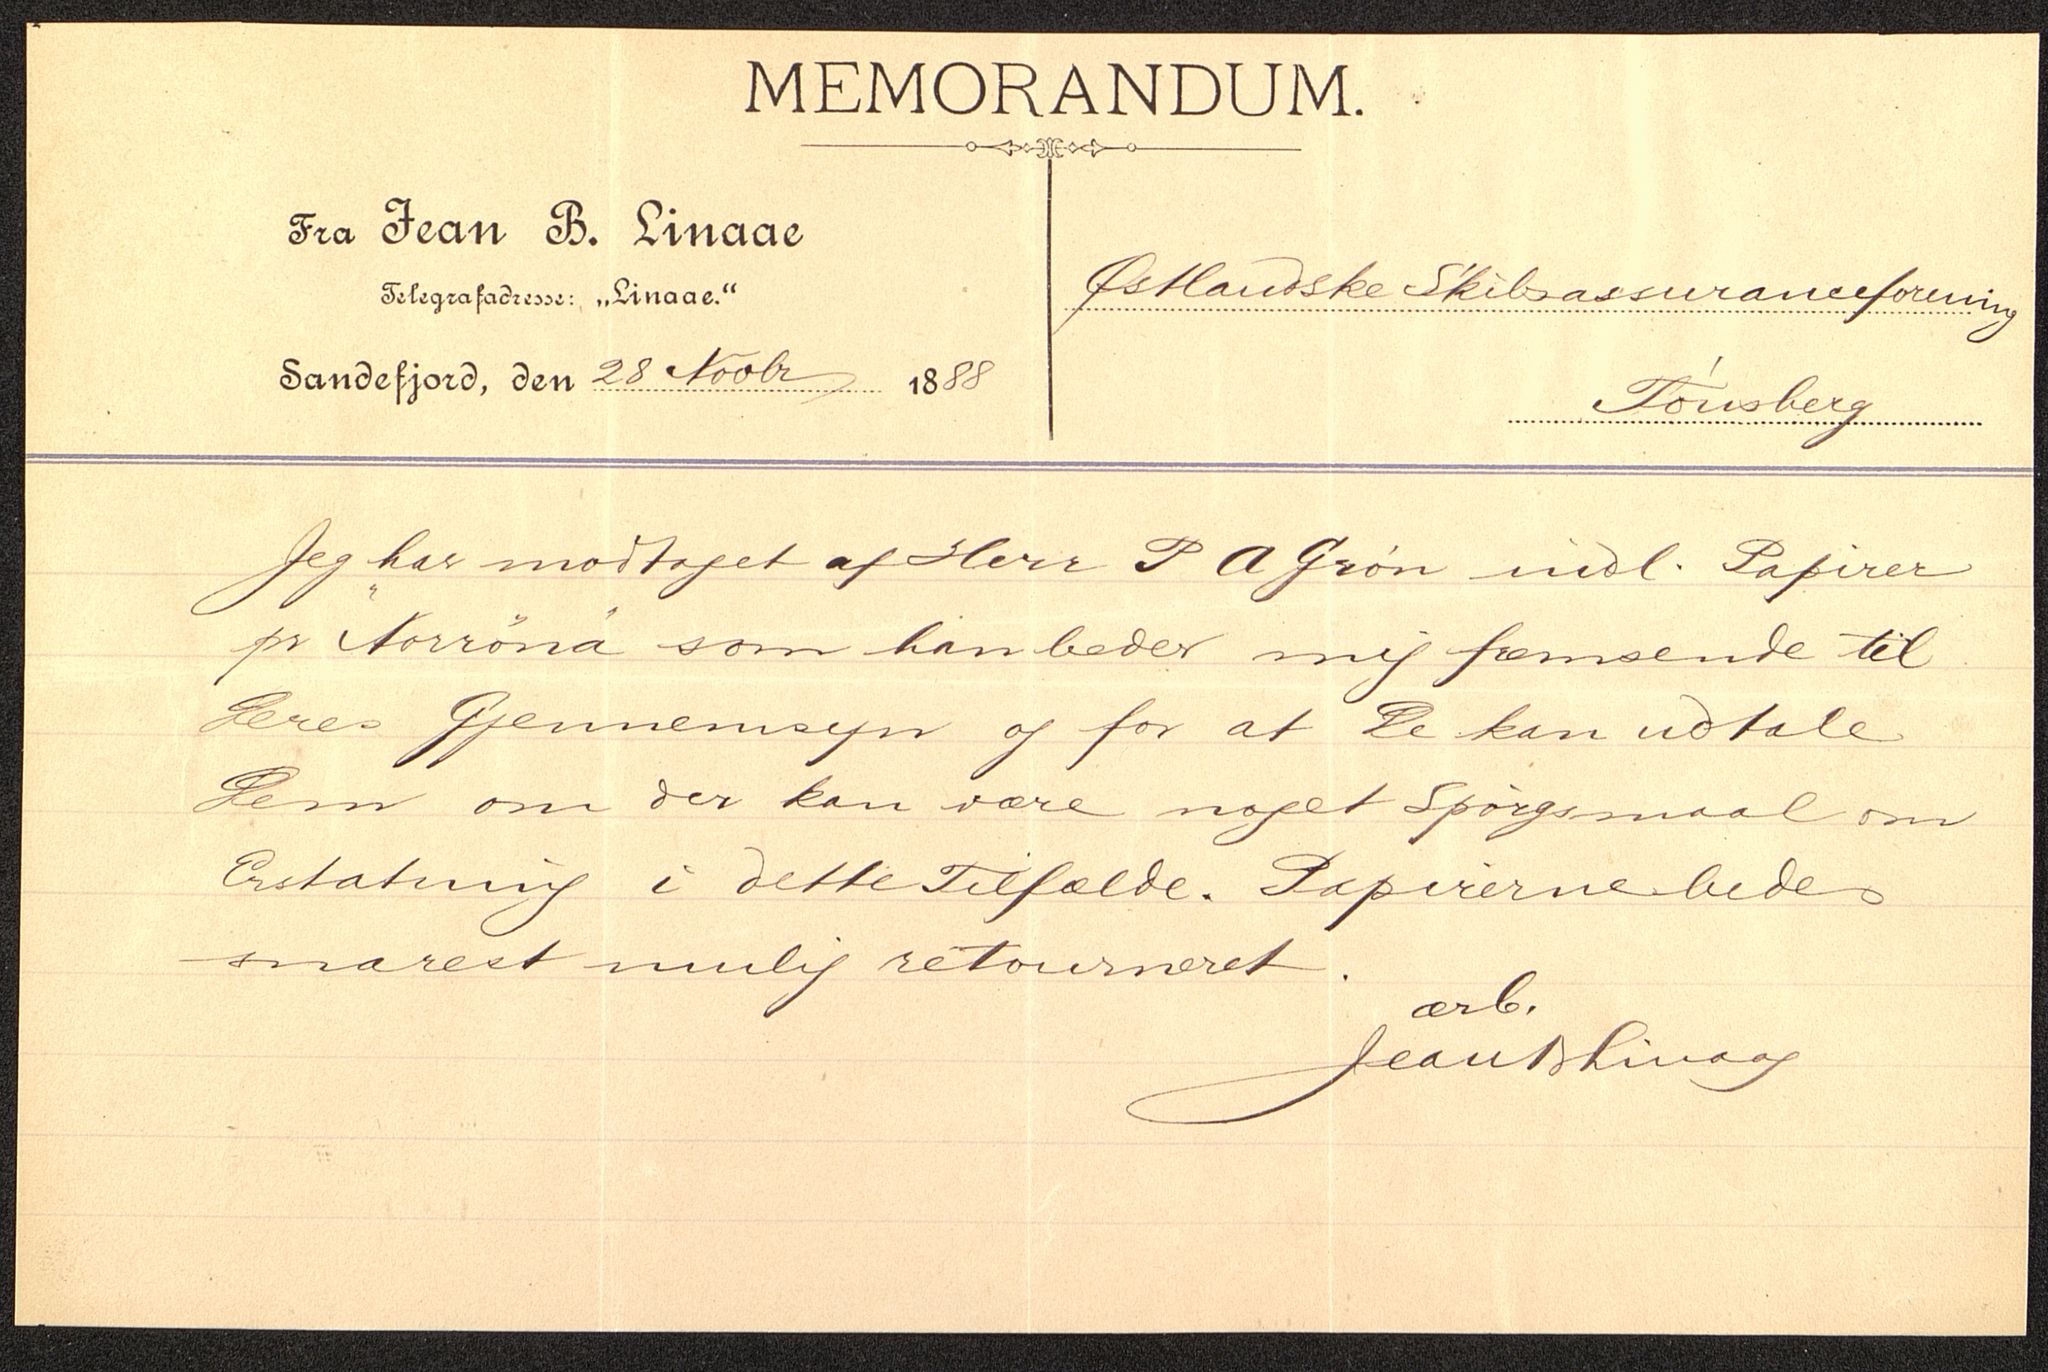 MEMORANDUM.
Fra Jean B. Linaae
Telegrafadresse: „Linaae.“
Sandefjord, den 28 Novbr 1888
Østlandske Skibsassuranceforening
Tönsberg
Jeg har modtaget af Herr P A Grön indl. Papirer
pr "Norröna" som han beder mig fremsende til
Deres Gjennemsyn og for at De kan udtale
Dem om der kan være noget Spörgsmaal om
Erstatning i dette Tilfælde. Papirerne bedes
snarest mulig retourneret.
ærb.
Jean B Linaae